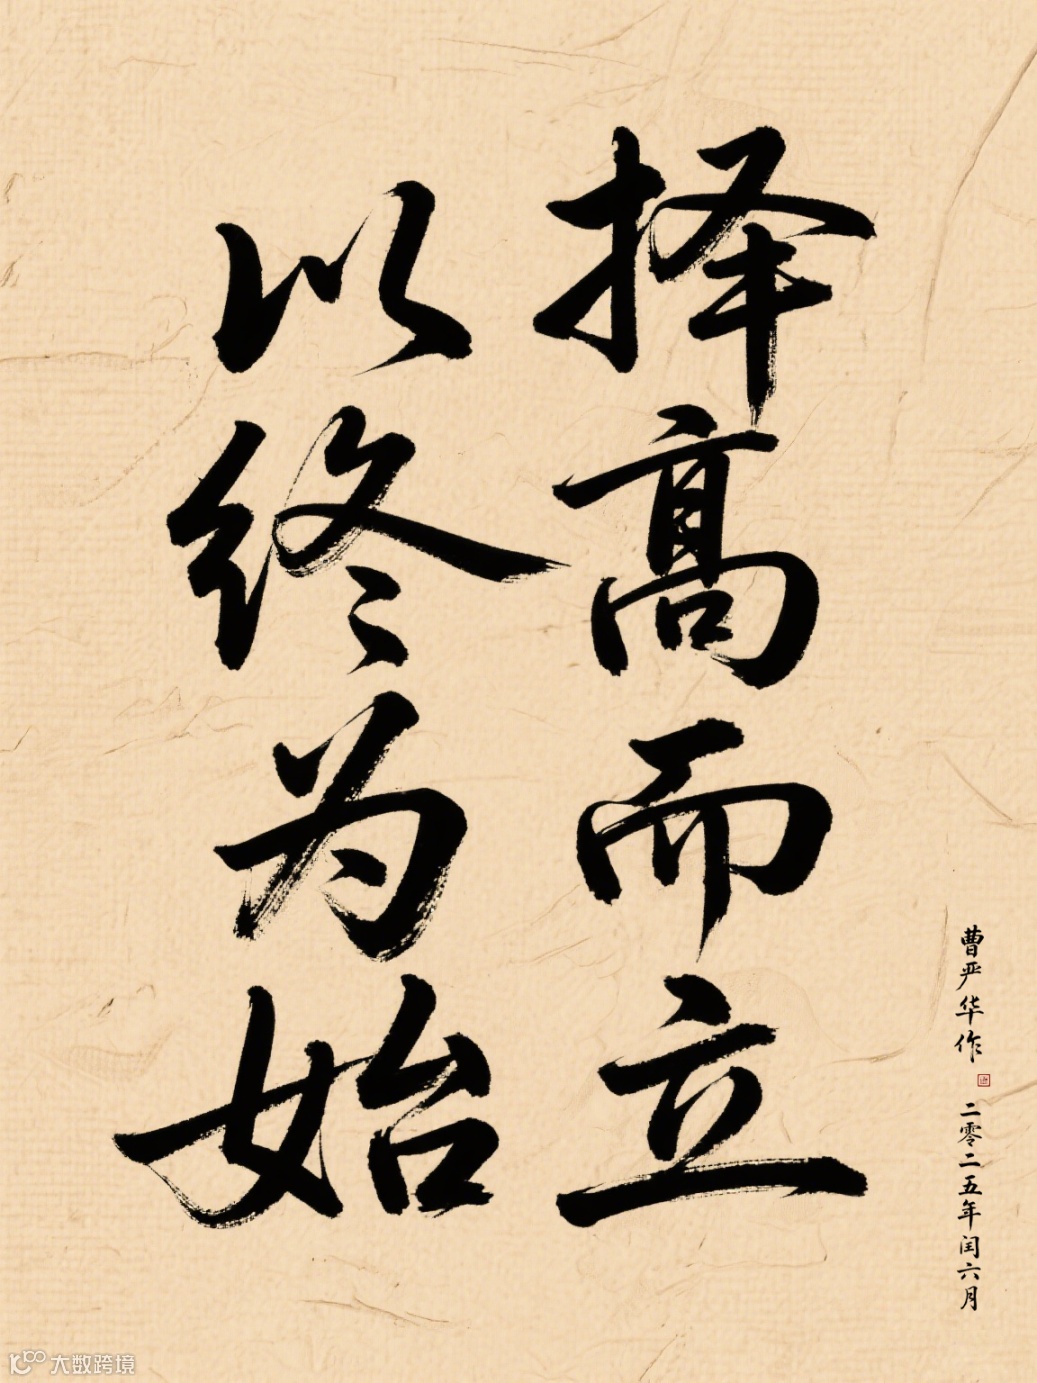 择高而立
以终为始
曹严华作
二零二五年闰六月
大数跨境